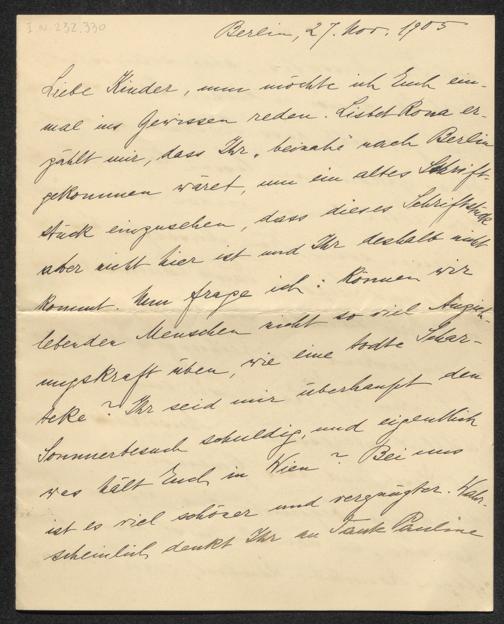 I.N. 232.330
Berlin, 27. Nov. 1905
Liebe Kinder, nun möchte ich Euch ein-
mal ins Gewissen reden. Lisbet Rona er-
zählt mir, dass Ihr beinahe nach Berlin
gekommen wäret, um ein altes Schrift-
stück einzusehen, dass dieses Schriftstück
aber nicht hier ist und Ihr deshalb nicht
kommt. Nun frage ich: Können wir
lebenden Menschen nicht so viel Anzieh-
ungskraft üben, wie eine todte Schar-
teke? Ihr seid mir überhaupt den
Sommerbesuch schuldig, und eigentlich
was hält Euch in Wien? Bei uns
ist es viel schöner und vergnügter. Wahr-
scheinlich denkt Ihr an Tante Pauline